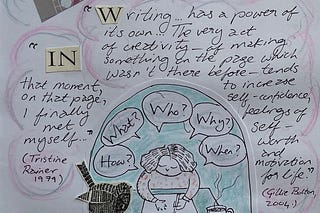 Writing... has a power of
its own... The very act
of creativity - of making
something on the page which
wasn't there before - tends
to increase
self-confidence,
feelings of
self-
worth
and
motivation
for life."
(Gillie Bolton,
2004.)
"
IN
that moment,
on that page,
I finally
met
myself..."
(Tristine
Rainer
1979)
How?
What?
Who?
Why?
When?